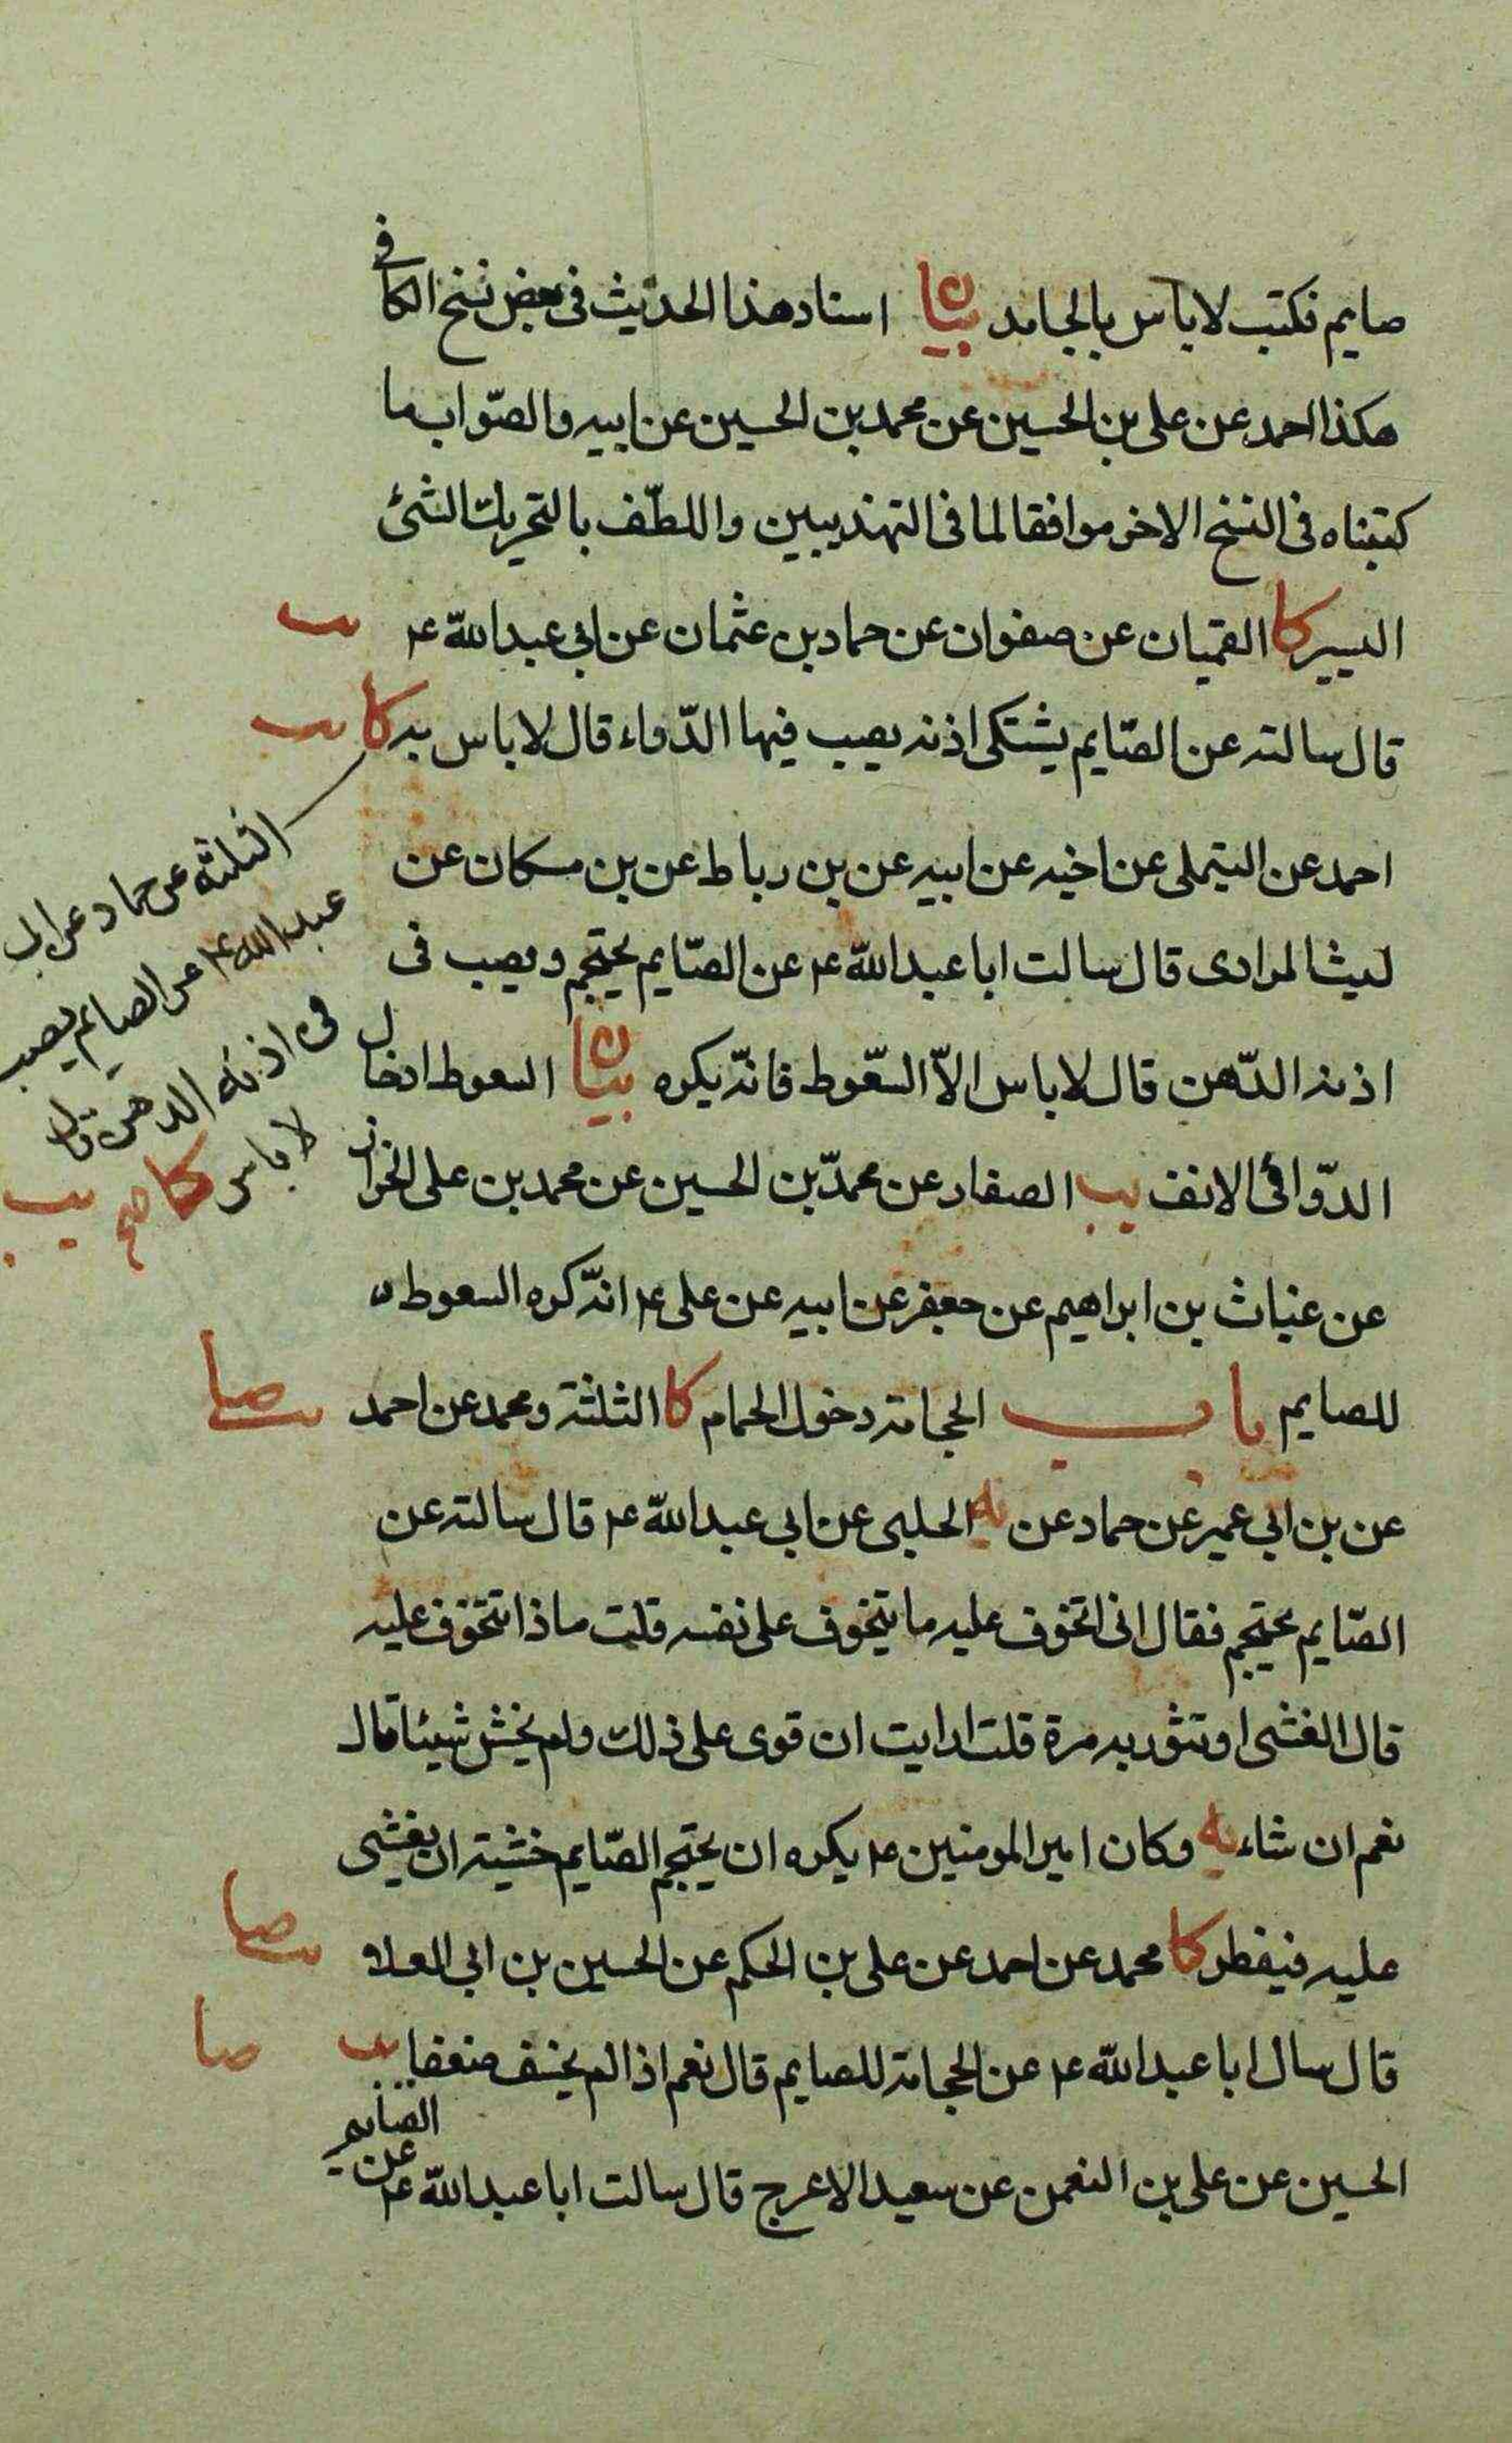 صايم فكتب لا باس بالجامد بيان اسناد هذا الحديث فى بعض نسخ الكافى
هكذا احمد عن على بن الحسين عن محمد بن الحسين عن ابيه والصّواب ما
كتبناه فى النسخ الاخر موافقا لما فى التهذيبين واللطّف بالتحريك الشئ
اليسير كا القميان عن صفوان عن حماد بن عثمان عن ابى عبد اللّه ع يب
قال سالته عن الصّايم يشتكى اذنه يصب فيها الدّواء قال لا باس به كا يب
الثلثة عن حماد عن ابى
عبد الله ع عن الصايم يصب
فى اذنه الدهن قال
لا باس كا صح يب
احمد عن التيملى عن اخيه عن ابيه عن بن رباط عن بن مسكان عن
ليث المرادى قال سالت ابا عبد اللّه ع عن الصّايم يحتجم ويصب فى
اذنه الدّهن قال لا باس الاّ السّعوط فانّه يكره بيان السعوط ادخال
الدّوا فى الانف يب الصفار عن محمّد بن الحسين عن محمد بن على الخزاز
عن غياث بن ابراهيم عن جعفر عن ابيه عن على ع انّه كره السعوط
للصايم باب الحجامة ودخول الحمام كا الثلثة ومحمد عن احمد يب صا
عن بن ابى عمير عن حماد عن يه الحلبى عن ابى عبد اللّه ع قال سالته عن
الصّايم يحتجم فقال انى اتخوف عليه ما يتخوف على نفسه قلت ما ذا تتخوف عليه
قال الغشى او تثور به مرة قلت ارايت ان قوى على ذلك ولم يخش شيئا قال
نعم ان شاء يه وكان امير المومنين ع يكره ان يحتجم الصّايم خشية ان يغشى
عليه فيفطر كا محمد عن احمد عن على بن الحكم عن الحسين بن ابى العلا يب صا
قال سال ابا عبد اللّه ع عن الحجامة للصايم قال نعم اذا لم يخف ضعفا يب صا
الحسين عن على بن النعمن عن سعيد الاعرج قال سالت ابا عبد اللّه ع عن الصايم